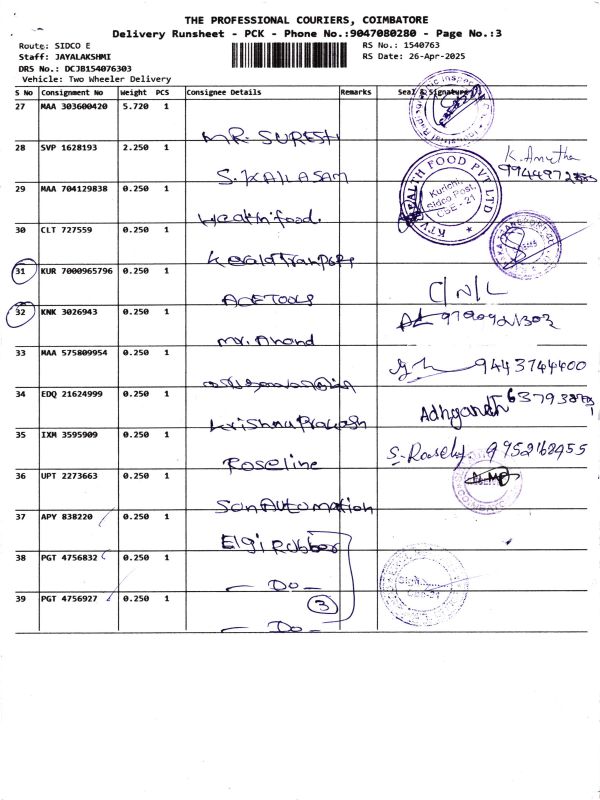 THE PROFESSIONAL COURIERS, COIMBATORE
Delivery Runsheet - PCK - Phone No.:9047080280 - Page No.:3
Route: SIDCO E
RS No.: 1540763
Staff: JAYALAKSHMI
RS Date: 26-Apr-2025
DRS No.: DCJB154076303
Vehicle: Two Wheeler Delivery
S No Consignment No Weight PCS Consignee Details Remarks Seal & Signature
27 MAA 303600420 5.720 1
MR. SURESH
28 SVP 1628193 2.250 1
S. KAILASAM
K. Amutha
KTV HEALTH FOOD PVT LTD
Kurichi
Sidco Post,
CBE - 21
29 MAA 704129838 0.250 1
Health food.
30 CLT 727559 0.250 1
31 KUR 7000965796 0.250 1
ACE TOOLS
C/N/L
32 KNK 3026943 0.250 1
Mr. Anand
33 MAA 575809954 0.250 1
9443744400
34 EDQ 21624999 0.250 1
Krishna Prakash
35 IXM 3595909 0.250 1
Roseline
S. Rosely. 9952162955
36 UPT 2273663 0.250 1
San Automation
37 APY 838220 0.250 1
Elgi Rubber
38 PGT 4756832 0.250 1
- Do -
39 PGT 4756927 0.250 1
3
- Do -